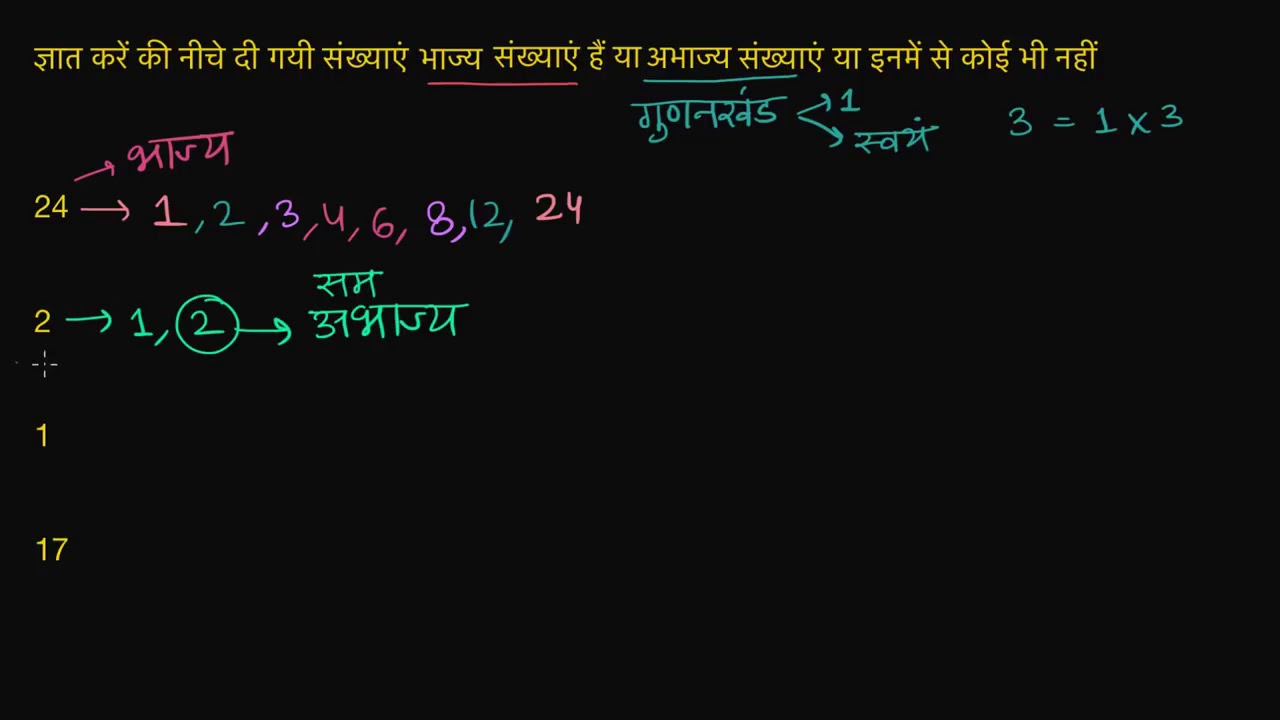 ज्ञात करें की नीचे दी गयी संख्याएं भाज्य संख्याएं हैं या अभाज्य संख्याएं या इनमें से कोई भी नहीं
गुणनखंड 1
स्वयं
3 = 1 x 3
भाज्य
24 → 1, 2, 3, 4, 6, 8, 12, 24
सम
2 → 1, 2 → अभाज्य
1
17